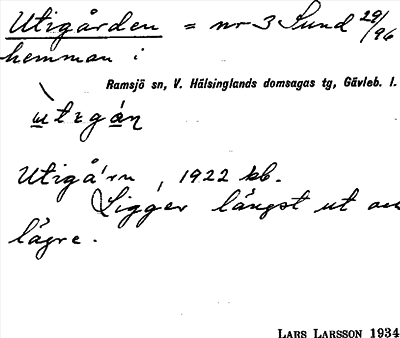 Utigården = nr 3 Sund 29/96
hemman i
Ramsjö sn, V. Hälsinglands domsagas tg, Gävleb. l.
ùtɩgán
Utigå'rn, 1922 kb.
Ligger längst ut och
lägre.
LARS LARSSON 1934